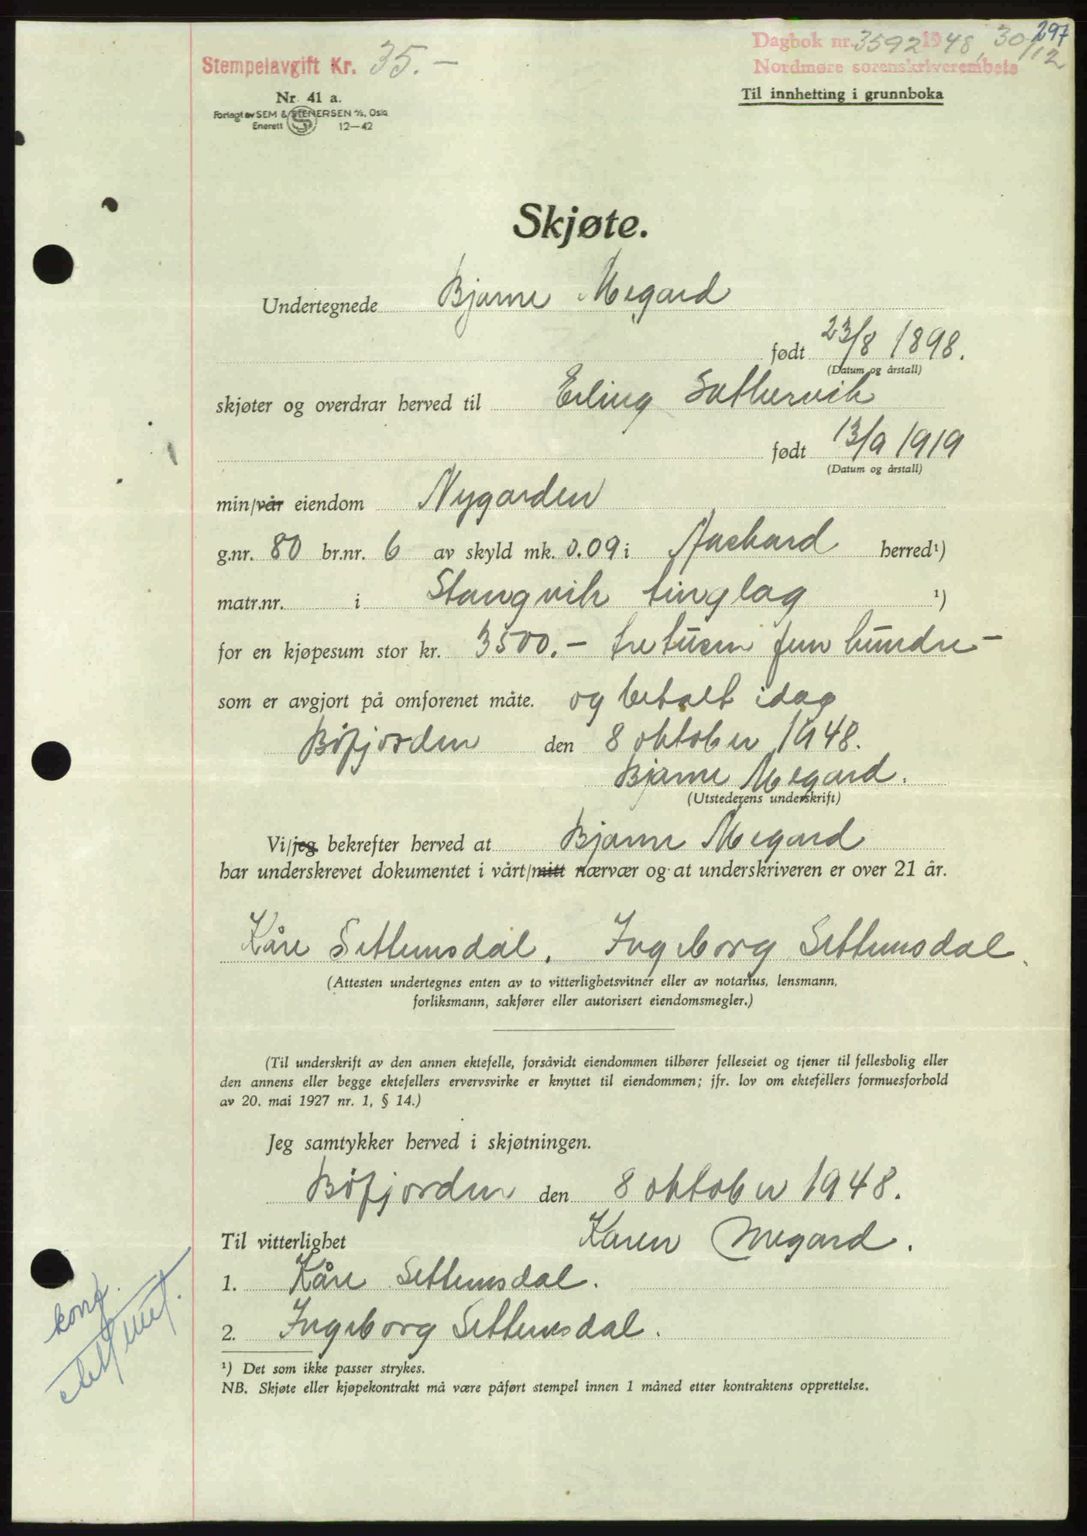 297
Dagbok nr. 3592 1948, 30/12
Stempelavgift Kr. 35.—
Nordmøre sorenskriverembete
Nr. 41 a.
Til innhefting i grunnboka
Forlagt av SEM & STENERSEN A/S, Oslo
Enerett 12—42
Skjøte.
Undertegnede Bjarne Megard
født 23/8 1898.
(Datum og årstall)
skjøter og overdrar herved til Erling Sæthervik
født 13/9 1919
(Datum og årstall)
min/vår eiendom Nygarden
g.nr. 80 br.nr. 6 av skyld mk. 0.09 i herred¹)
matr.nr. i Stangvik tinglag ¹)
for en kjøpesum stor kr. 3500.— tretusen fem hundre—
som er avgjort på omforenet måte. og betalt idag
Bøfjorden den 8 oktober 1948.
Bjarne Megard.
(Utstederens underskrift)
Vi/jeg bekrefter herved at Bjarne Megard
har underskrevet dokumentet i vårt/mitt nærvær og at underskriveren er over 21 år.
Kåre Settemsdal. Ingeborg Settemsdal.
(Attesten undertegnes enten av to vitterlighetsvitner eller av notarius, lensmann,
forliksmann, sakfører eller autorisert eiendomsmegler.)
(Til underskrift av den annen ektefelle, forsåvidt eiendommen tilhører felleseiet og tjener til fellesbolig eller
den annens eller begge ektefellers ervervsvirke er knyttet til eiendommen; jfr. lov om ektefellers formuesforhold
av 20. mai 1927 nr. 1, § 14.)
Jeg samtykker herved i skjøtningen.
Bøfjorden den 8 oktober 1948.
Karen Megard.
Til vitterlighet
1. Kåre Settemsdal.
2. Ingeborg Settemsdal.
konf.
¹) Det som ikke passer strykes.
NB. Skjøte eller kjøpekontrakt må være påført stempel innen 1 måned etter kontraktens opprettelse.